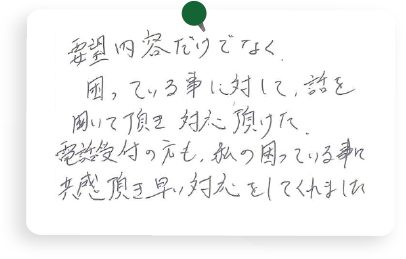 要望内容だけでなく、
困っている事に対して、話を
聞いて頂き対応頂けた。
電話受付の方も、私の困っている事に
共感頂き早い対応をしてくれました